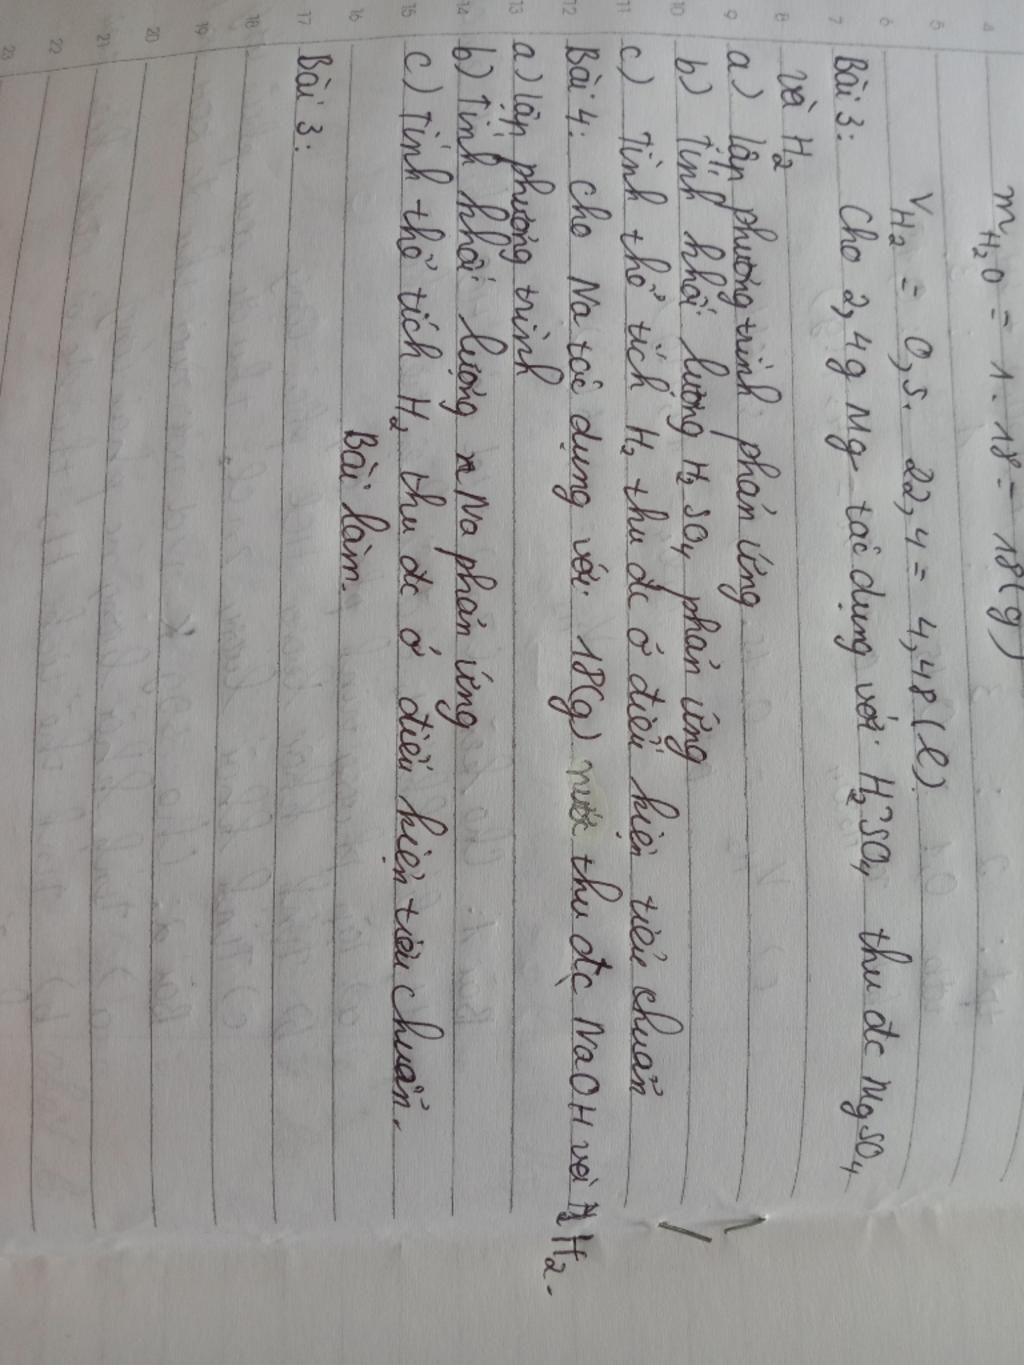 m H₂O = 1. 18 = 18(g)
V H₂ = 0,5. 22,4 = 4,48 (l)
Bài 3: Cho 2,4g Mg tác dụng với H₂SO₄ thu đc MgSO₄
và H₂
a) lập phương trình phản ứng
b) Tính khối lượng H₂SO₄ phản ứng
c) Tính thể tích H₂ thu đc ở điều kiện tiêu chuẩn
Bài 4: cho Na tác dụng với 18(g) nước thu đc NaOH và H₂.
a) lập phương trình
b) Tính khối lượng Na phản ứng
c) Tính thể tích H₂ thu đc ở điều kiện tiêu chuẩn.
Bài làm.
Bài 3:
4
5
6
7
8
9
10
11
12
13
14
15
16
17
18
19
20
21
22
23